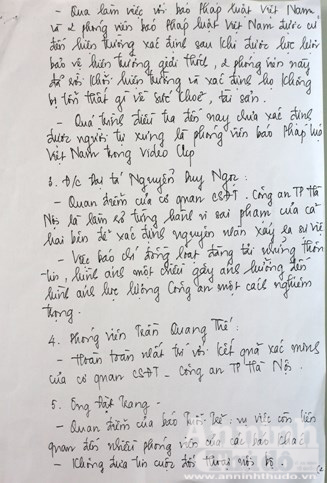 - Qua làm việc với báo Pháp luật Việt Nam
vì 2 phóng viên báo Pháp luật Việt Nam được cử
đến hiện trường xác định sau khi được lực lượng
bảo vệ hiện trường giải thích, 2 phóng viên này
đã rời khỏi hiện trường và xác định họ không
bị tổn thất gì về sức khoẻ, tài sản.
- Quá trình điều tra đến nay chưa xác định
được người tự xưng là phóng viên báo Pháp luật
Việt Nam trong video clip
3. Đ/c Đại tá Nguyễn Duy Ngọc:
- Quan điểm của cơ quan CSĐT - Công an TP Hà
Nội là làm rõ từng hành vi sai phạm của cả
hai bên để xác định nguyên nhân xảy ra sự việc
- Việc báo chí đồng loạt đăng tải những thông
tin, hình ảnh một chiều gây ảnh hưởng đến
hình ảnh lực lượng Công an một cách nghiêm
trọng.
4. Phóng viên Trần Quang Thế:
- Hoàn toàn nhất trí với kết quả xác minh
của cơ quan CSĐT - Công an TP Hà Nội.
5. Ông Đạt Trang -
- Quan điểm của báo Tuổi trẻ, vụ việc còn liên
quan đến nhiều phóng viên của các báo khác
- Không đưa tin cuộc đối thoại nội bộ.
www.anninhthudo.vn